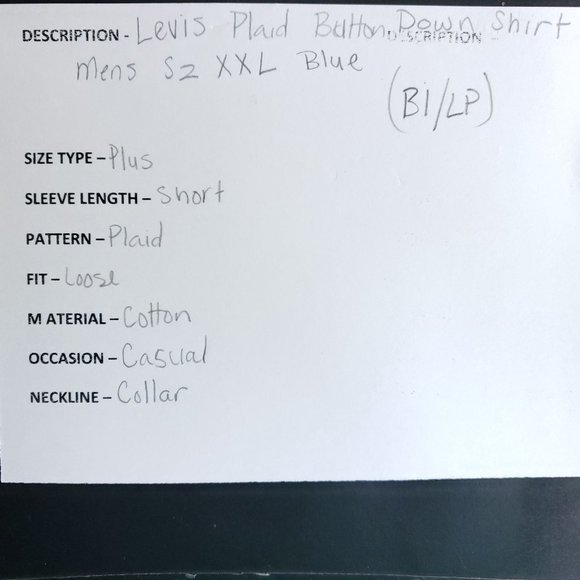 DESCRIPTION - Levis Plaid Button Down Shirt
DESCRIPTION -
Mens Sz XXL Blue
(BI/LP)
SIZE TYPE – Plus
SLEEVE LENGTH – Short
PATTERN – Plaid
FIT – Loose
M ATERIAL – Cotton
OCCASION – Casual
NECKLINE – Collar